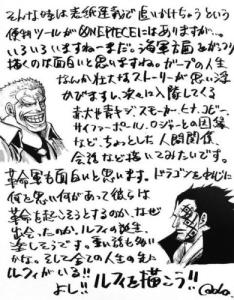 そんな時は表紙連載で追いかけちゃうという
便利ツールがONE PIECEにはありますが、。
いろいろいますねーまだ。海軍方面もがっつり
描くのは面白いと思いますね。ガープの人生
なんか壮大なストーリーが思い浮
かびますし、次に入隊してくる
赤犬や青キジ、スモーカー、ヒナ、コビー、
サイファーポール、ロジャーとの因縁
など、ちょっとした人間関係、
会話など描いてみたいです。
革命軍も面白いと思います。ドラゴンを中心に
何を思い何があって彼らは
革命を起こそうとするのか、なぜ
出会ったのか、ルフィの誕生、
楽しそうです。重い話も多い
かな。そして全ての人生の先に
ルフィがいる!!
よし!! ルフィを描こう!!